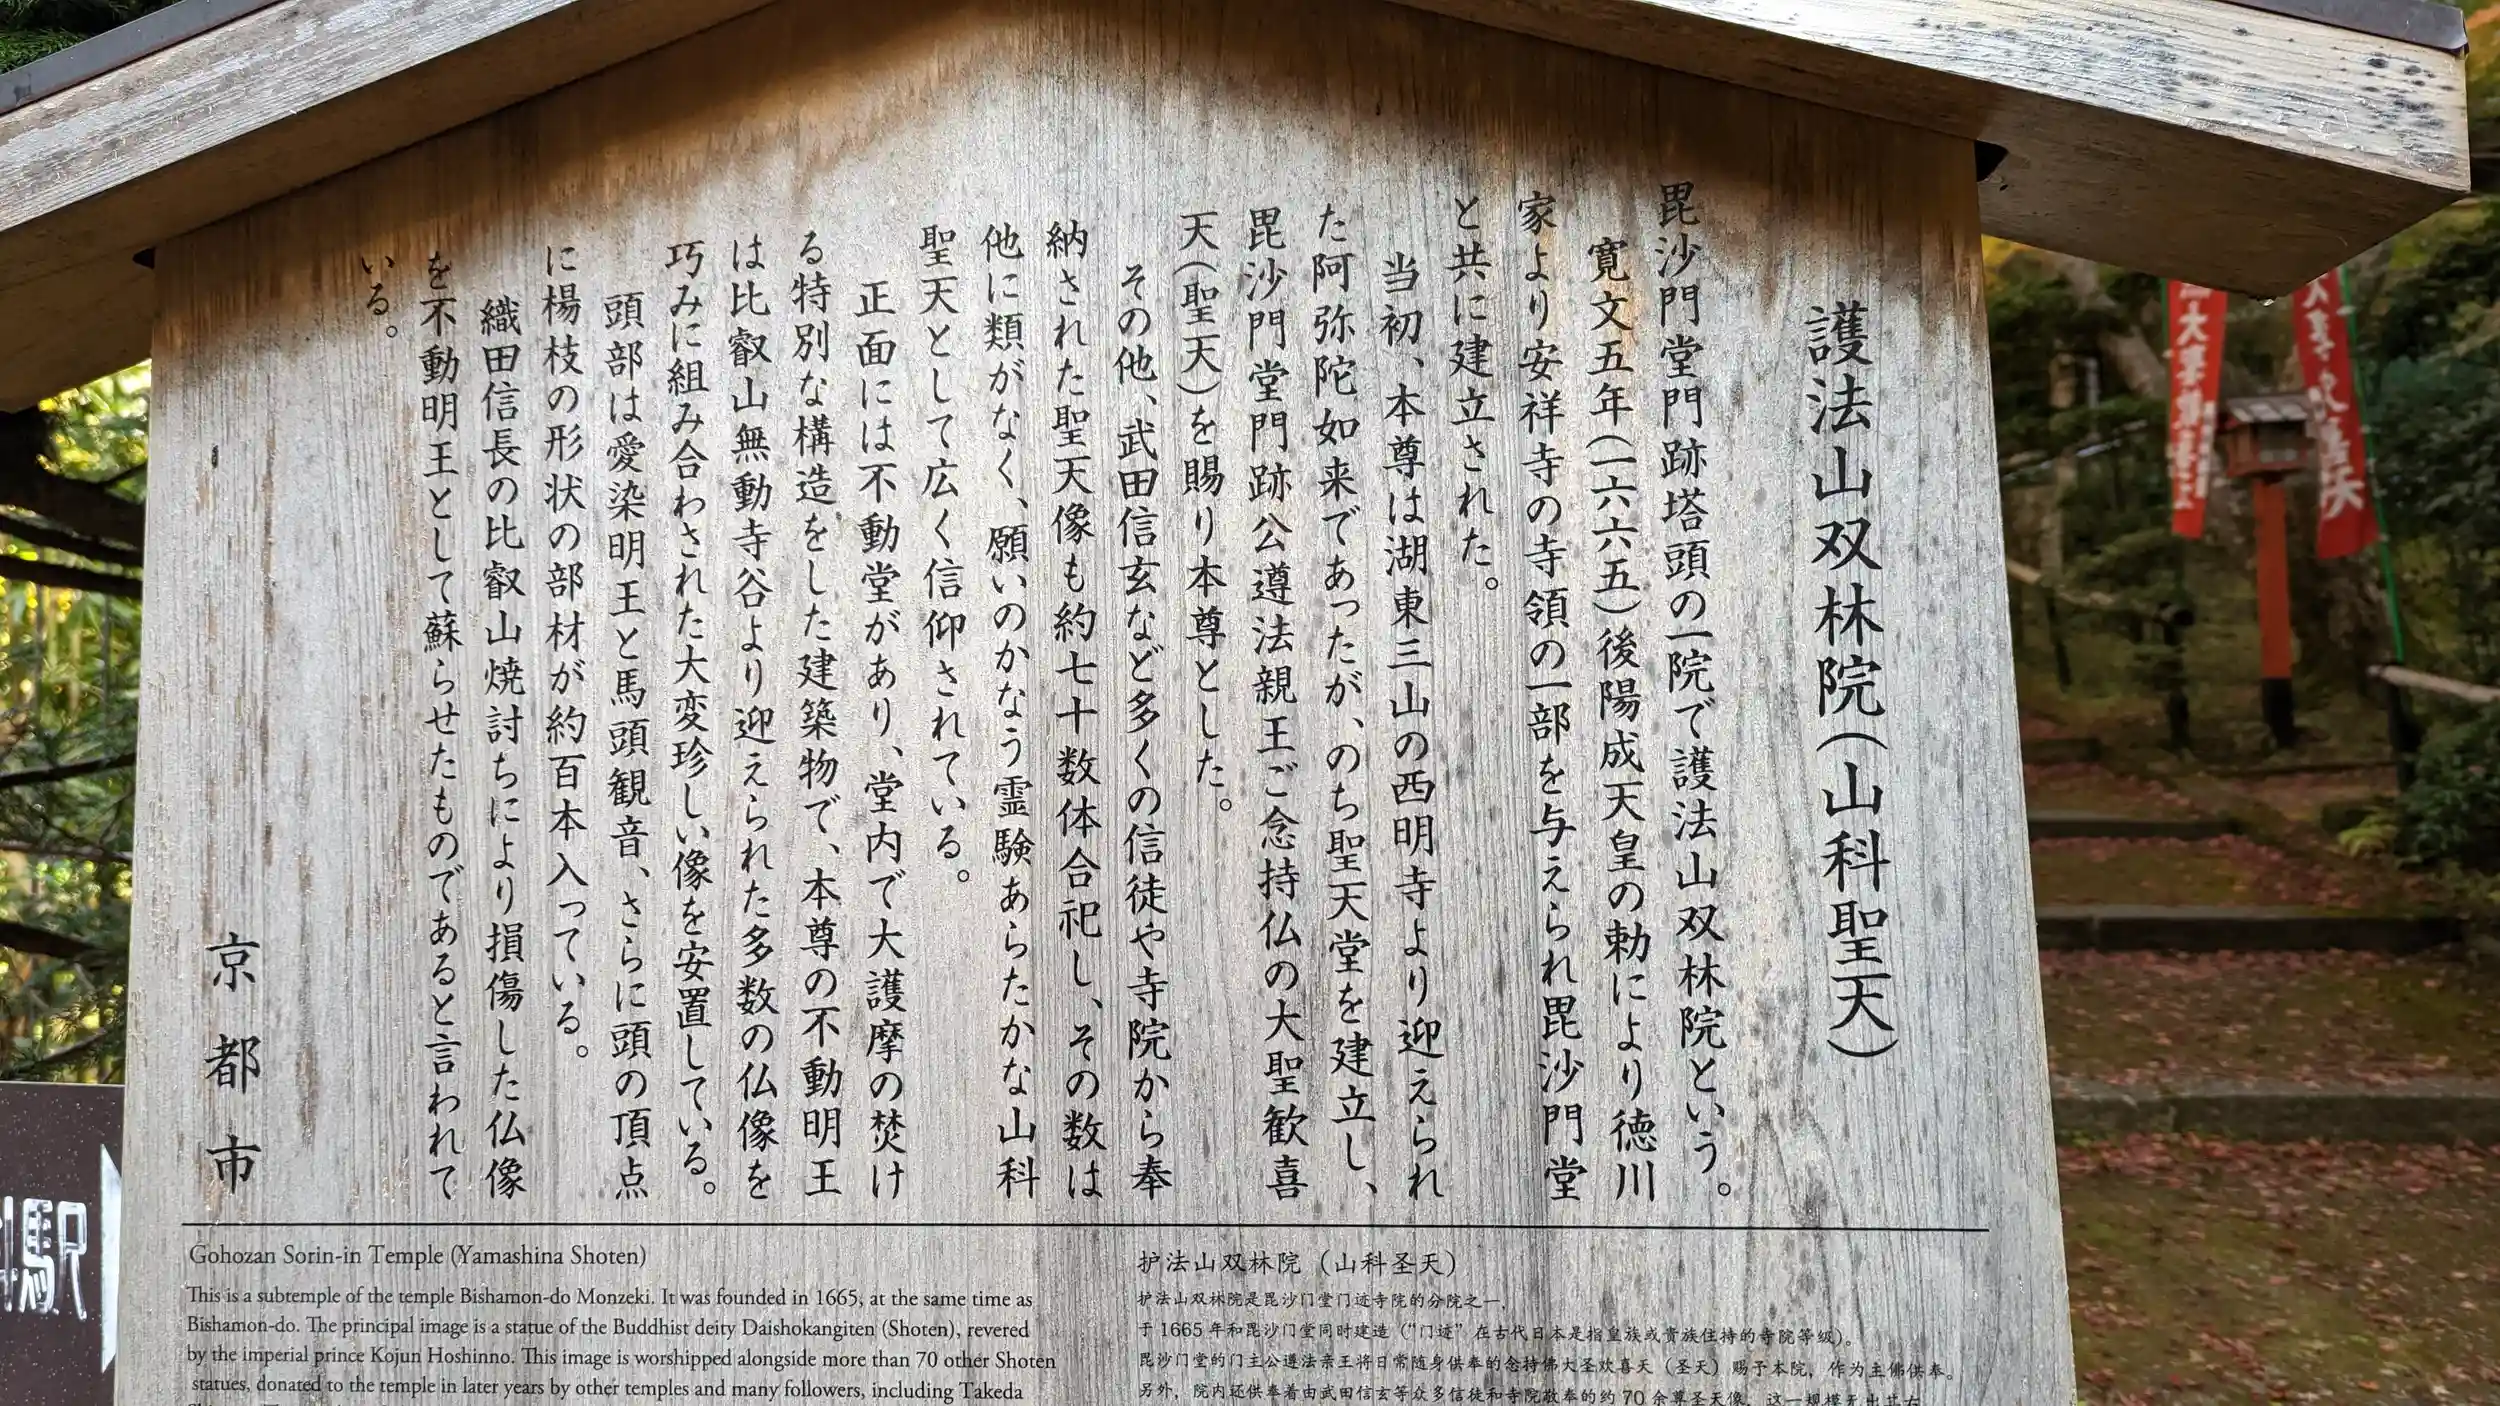 護法山双林院(山科聖天)
毘沙門堂門跡塔頭の一院で護法山双林院という。
寛文五年(一六六五)後陽成天皇の勅により徳川
家より安祥寺の寺領の一部を与えられ毘沙門堂
と共に建立された。
当初、本尊は湖東三山の西明寺より迎えられ
た阿弥陀如来であったが、のち聖天堂を建立し、
毘沙門堂門跡公遵法親王ご念持仏の大聖歓喜
天(聖天)を賜り本尊とした。
その他、武田信玄など多くの信徒や寺院から奉
納された聖天像も約七十数体合祀し、その数は
他に類がなく、願いのかなう霊験あらたかな山科
聖天として広く信仰されている。
正面には不動堂があり、堂内で大護摩の焚け
る特別な構造をした建築物で、本尊の不動明王
は比叡山無動寺谷より迎えられた多数の仏像を
巧みに組み合わされた大変珍しい像を安置している。
頭部は愛染明王と馬頭観音、さらに頭の頂点
に楊枝の形状の部材が約百本入っている。
織田信長の比叡山焼討ちにより損傷した仏像
を不動明王として蘇らせたものであると言われて
いる。
京都市
Gohozan Sorin-in Temple (Yamashina Shoten)
This is a subtemple of the temple Bishamon-do Monzeki. It was founded in 1665, at the same time as
Bishamon-do. The principal image is a statue of the Buddhist deity Daishokangiten (Shoten), revered
by the imperial prince Kojun Hoshinno. This image is worshipped alongside more than 70 other Shoten
statues, donated to the temple in later years by other temples and many followers, including Takeda
护法山双林院（山科圣天）
护法山双林院是毘沙门堂门迹寺院的分院之一，
于1665年和毘沙门堂同时建造（“门迹”在古代日本是指皇族或贵族住持的寺院等级）。
毘沙门堂的门主公遵法亲王将日常随身供奉的念持佛大圣欢喜天（圣天）赐予本院，作为主佛供奉。
另外，院内还供奉着由武田信玄等众多信徒和寺院敬奉的约70余尊圣天像，这一规模无出其右
駅